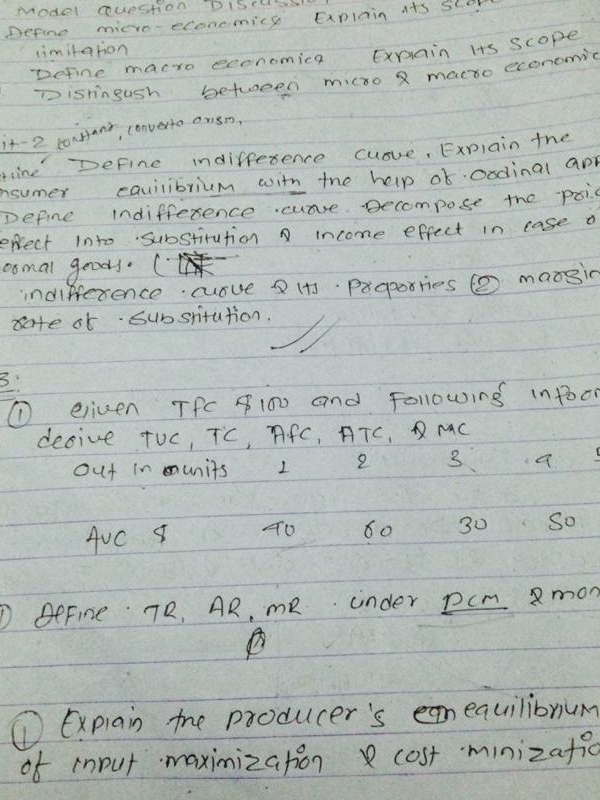 Model Question Discussi
Define micro-economics Explain its scop
limitation
Define macro economics Explain Its scope
Distingush between micro & macro economic
it-2 constant, converto origin,
Define indifference cuove, Explain the
nsumer equilibrium with the help of oodinal app
Define indifference cuove Decompose the poic
effect into substitution & income effect in case o
oomal goods. (
indifference cuove & its Proporties (2) maogin
rate of substitution.
3:
(1) eiven TFC $100 and Following infoor
deoive TUC, TC, AFC, ATC, & MC
Out In units 1 2 3 4
AVC $ 40 60 30 50
Define TR, AR, MR under PCM & mon
(1) Explain the producer's equilibrium
of input maximization & cost minizatio